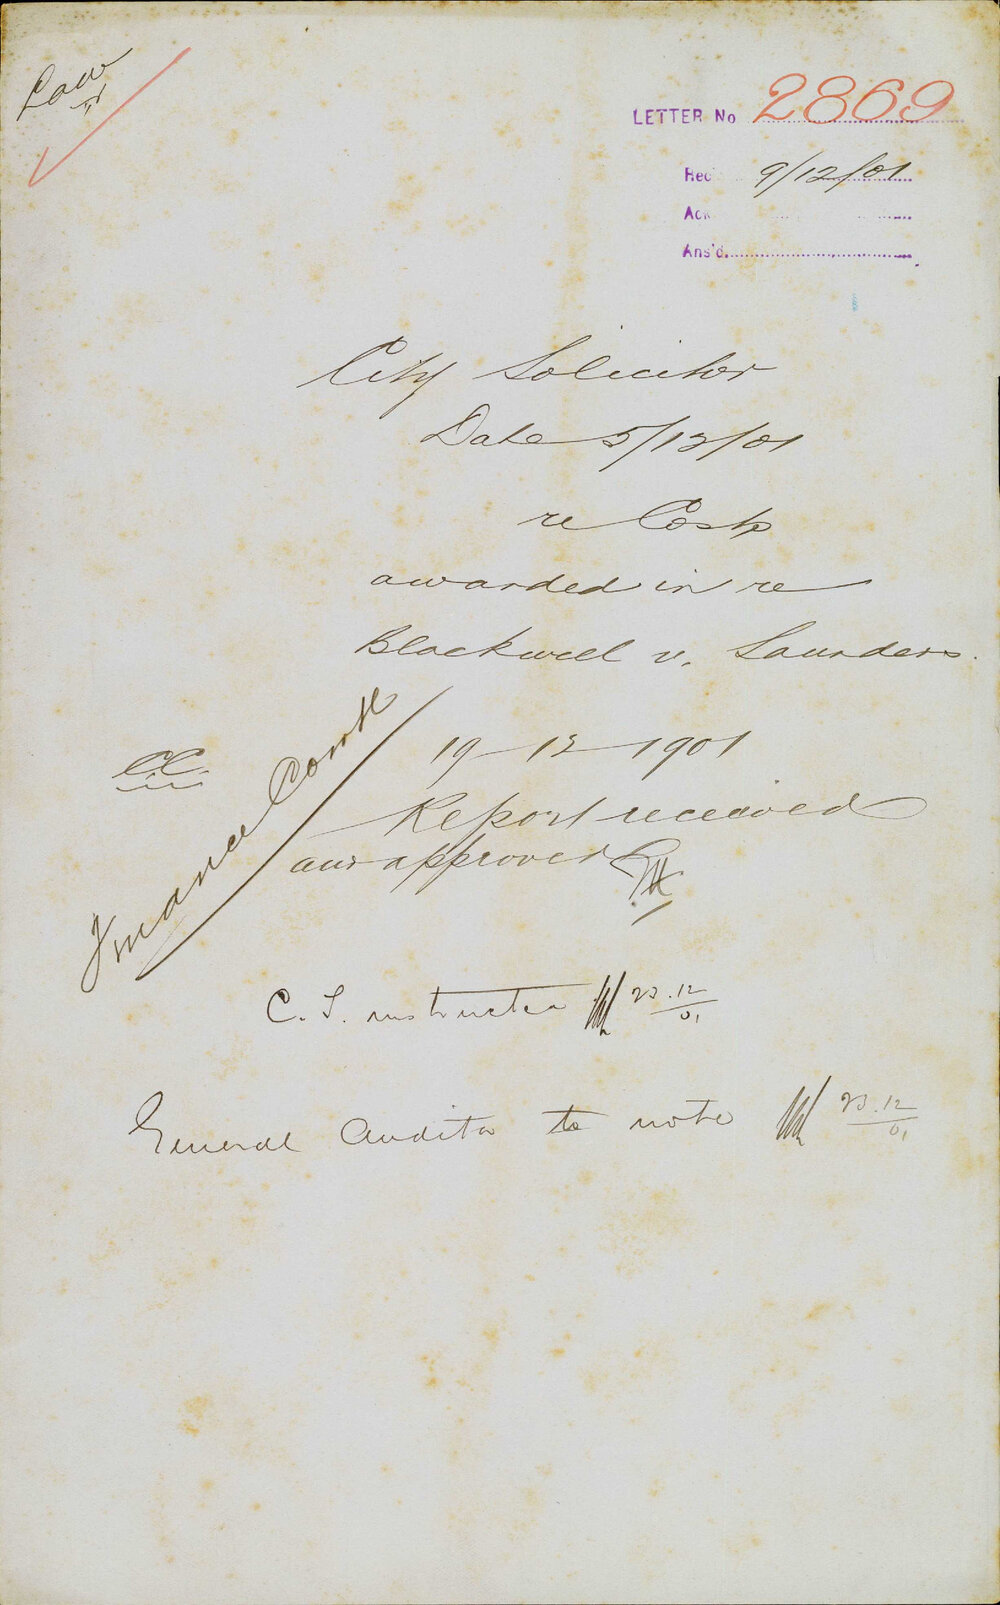 Law
LETTER No 2869
Rec 9/12/01
Ack
Ans'd.
City Solicitor
Date 5/12/01
re Costs
awarded in re
Blackwell v. Saunders.
CC.
Finance Comtt
19-12-1901
Report received
and approved
C. S. instructed 23.12/01
General Auditor to note 23.12/01